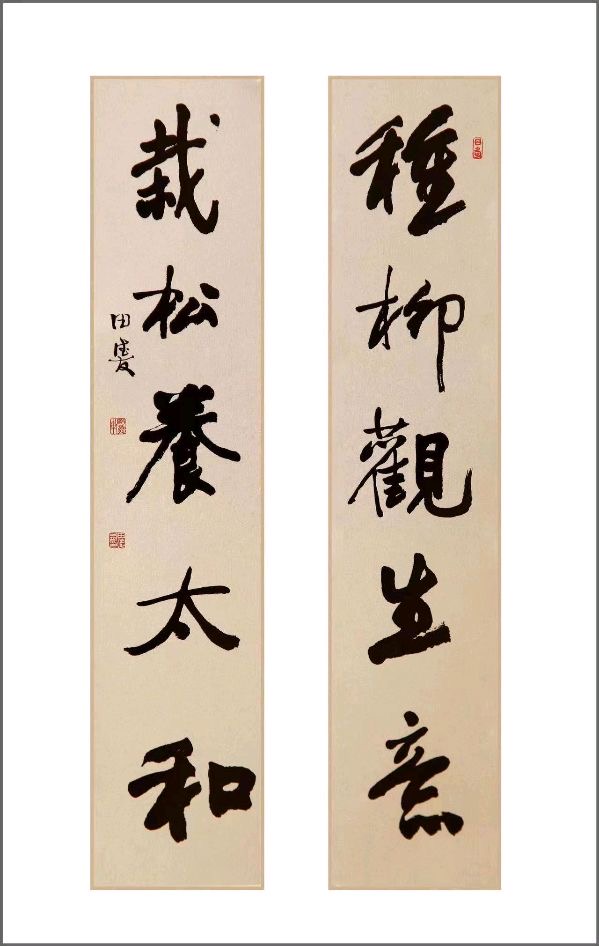 種柳觀生意
栽松養太和